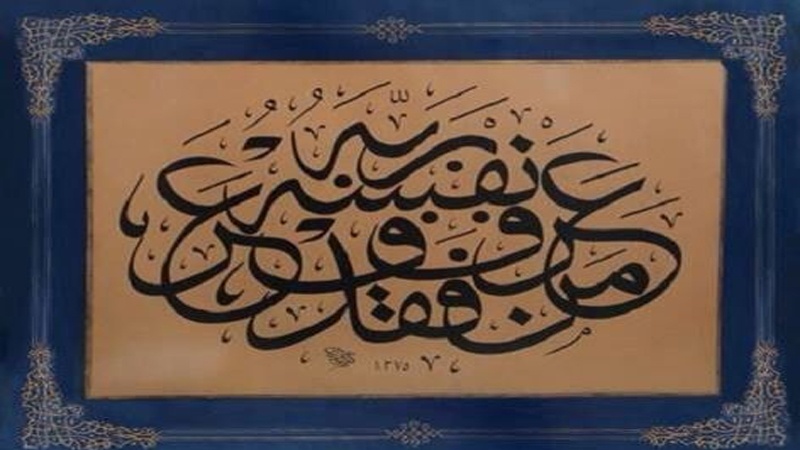 من عرف نفسه فقد عرف ربه
١٢٧٥